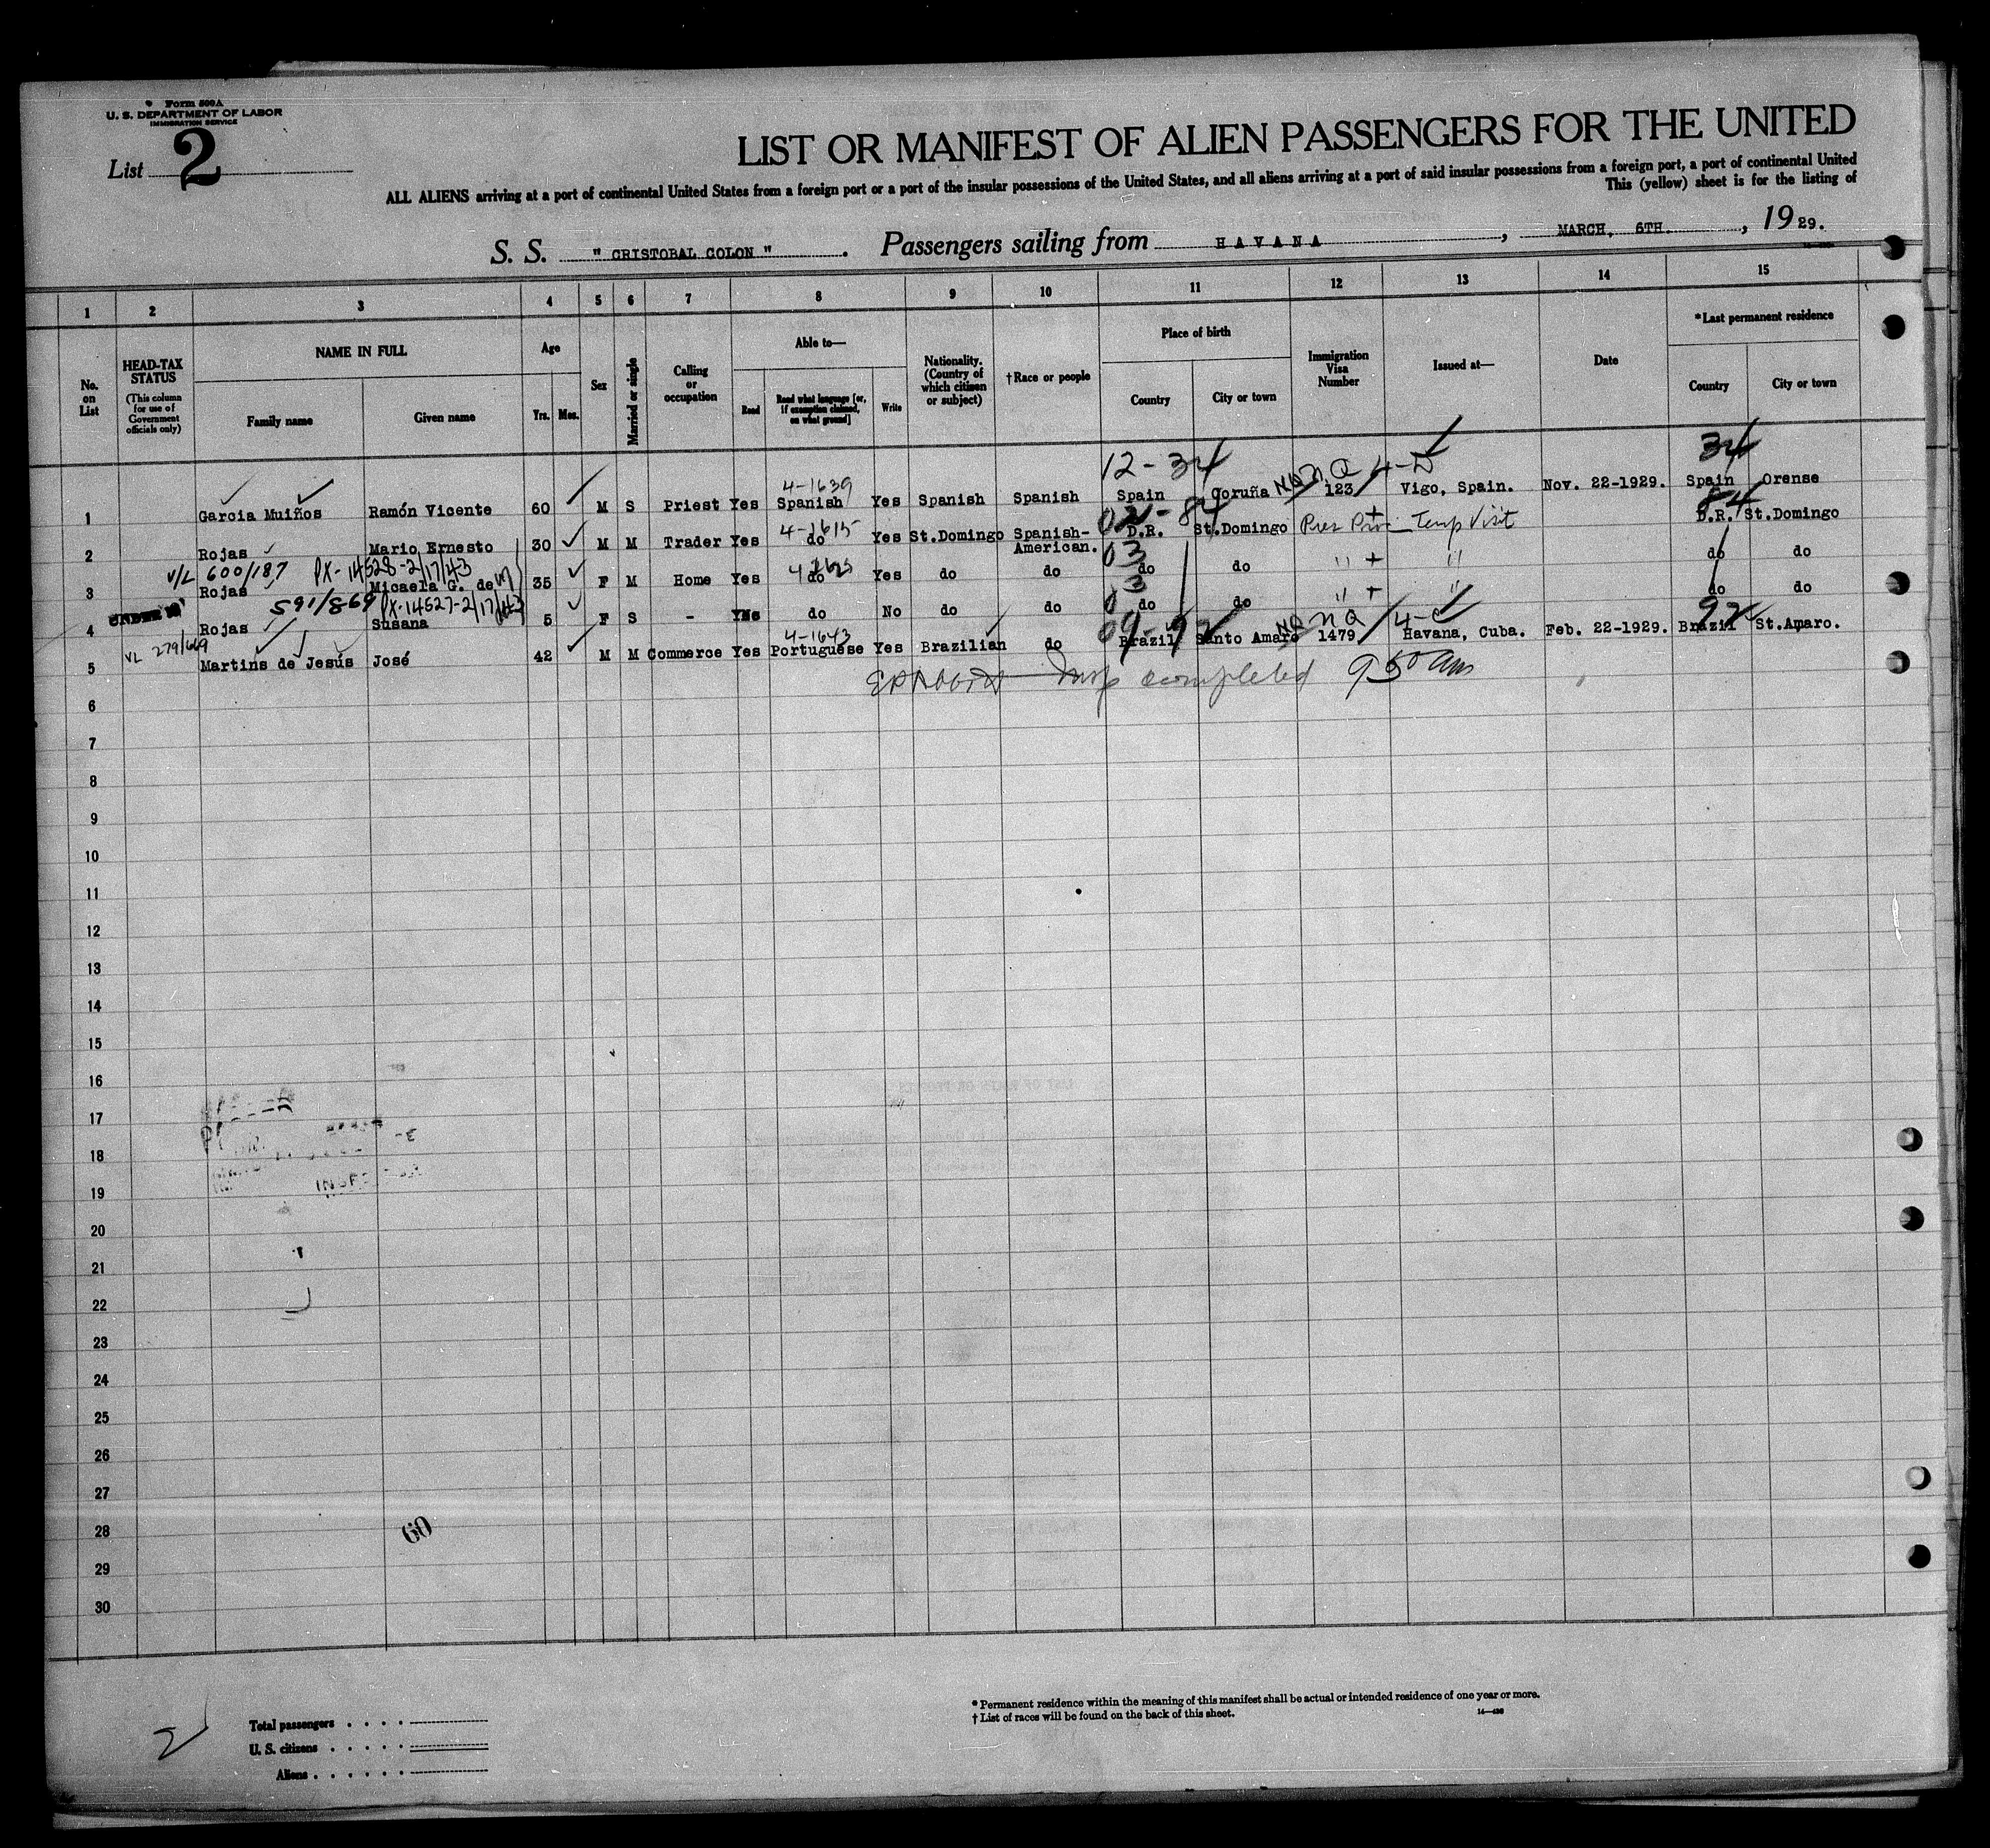 Form 500A
U. S. DEPARTMENT OF LABOR
IMMIGRATION SERVICE
List 2
LIST OR MANIFEST OF ALIEN PASSENGERS FOR THE UNITED
ALL ALIENS arriving at a port of continental United States from a foreign port or a port of the insular possessions of the United States, and all aliens arriving at a port of said insular possessions from a foreign port, a port of continental United
This (yellow) sheet is for the listing of
S. S. " CRISTOBAL COLON " . Passengers sailing from HAVANA , MARCH, 6TH. , 1929.
1 2 3 4 5 6 7 8 9 10 11 12 13 14 15
No. on List
HEAD-TAX STATUS
(This column for use of Government officials only)
NAME IN FULL
Family name Given name
Age
Yrs. Mos.
Sex
Married or single
Calling or occupation
Able to—
Read Read what language [or, if exemption claimed, on what ground] Write
Nationality. (Country of which citizen or subject)
†Race or people
Place of birth
Country City or town
Immigration Visa Number
Issued at—
Date
*Last permanent residence
Country City or town
12-34 NQ 4-D 34
4-1639
1 Garcia Muiños Ramón Vicente 60 M S Priest Yes Spanish Yes Spanish Spanish Spain Coruña 123 Vigo, Spain. Nov. 22-1929. Spain Orense
4-1615 84
2 Rojas Mario Ernesto 30 M M Trader Yes do Yes St.Domingo Spanish-American. D.R. St.Domingo Temp Visit D.R. St.Domingo
V/L 600/187 PX-14528-2/17/43
03
3 Rojas Micaela G. de 35 F M Home Yes do Yes do do do do " + " do do
UNDER 16 591/869 PX-14527-2/17/43
03
4 Rojas Susana 5 F S - do No do do do do " + " do do
VL 279/669 4-1643 09-92 NQ NQ 4-C 92
5 Martins de Jesús José 42 M M Commerce Yes Portuguese Yes Brazilian do Brazil Santo Amaro 1479 Havana, Cuba. Feb. 22-1929. Brazil St.Amaro.
Insp completed 9 50 am
6
7
8
9
10
11
12
13
14
15
16
17
18
19
20
21
22
23
24
25
26
27
28
29
30
60
2
Total passengers
U. S. citizens
Aliens
* Permanent residence within the meaning of this manifest shall be actual or intended residence of one year or more.
† List of races will be found on the back of this sheet.